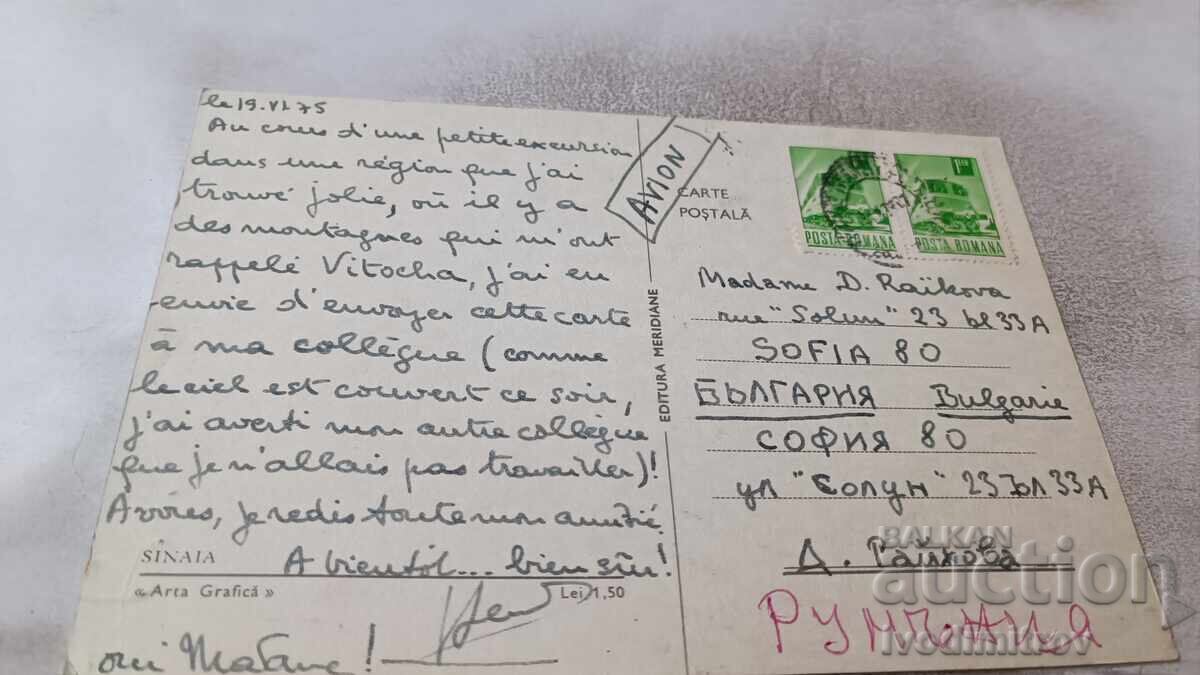 le 19.VI.75
Au cours d'une petite excursion
dans une région que j'ai
trouvé jolie, où il y a
des montagnes qui m'ont
rappelé Vitocha, j'ai eu
envie d'envoyer cette carte
à ma collègue (comme
le ciel est couvert ce soir,
j'ai averti mon autre collègue
que je n'allais pas travailler)!
A vōres, je redis toute mon amitié
A bientôt... bien sûr!
SINAIA
« Arta Grafică »
Lei 1,50
oui !
EDITURA MERIDIANE
AVION
CARTE
POȘTALĂ
1 LEU
POSTA ROMANA
POSTA ROMANA
Madame D. Raïkova
rue "Solun" 23 bl 33A
SOFIA 80
БЪЛГАРИЯ Bulgarie
СОФИЯ 80
ул "Солун" 23 бл 33А
Д. Райкова
РУМЪНИЯ
BALKAN
auction
ivodimitrov